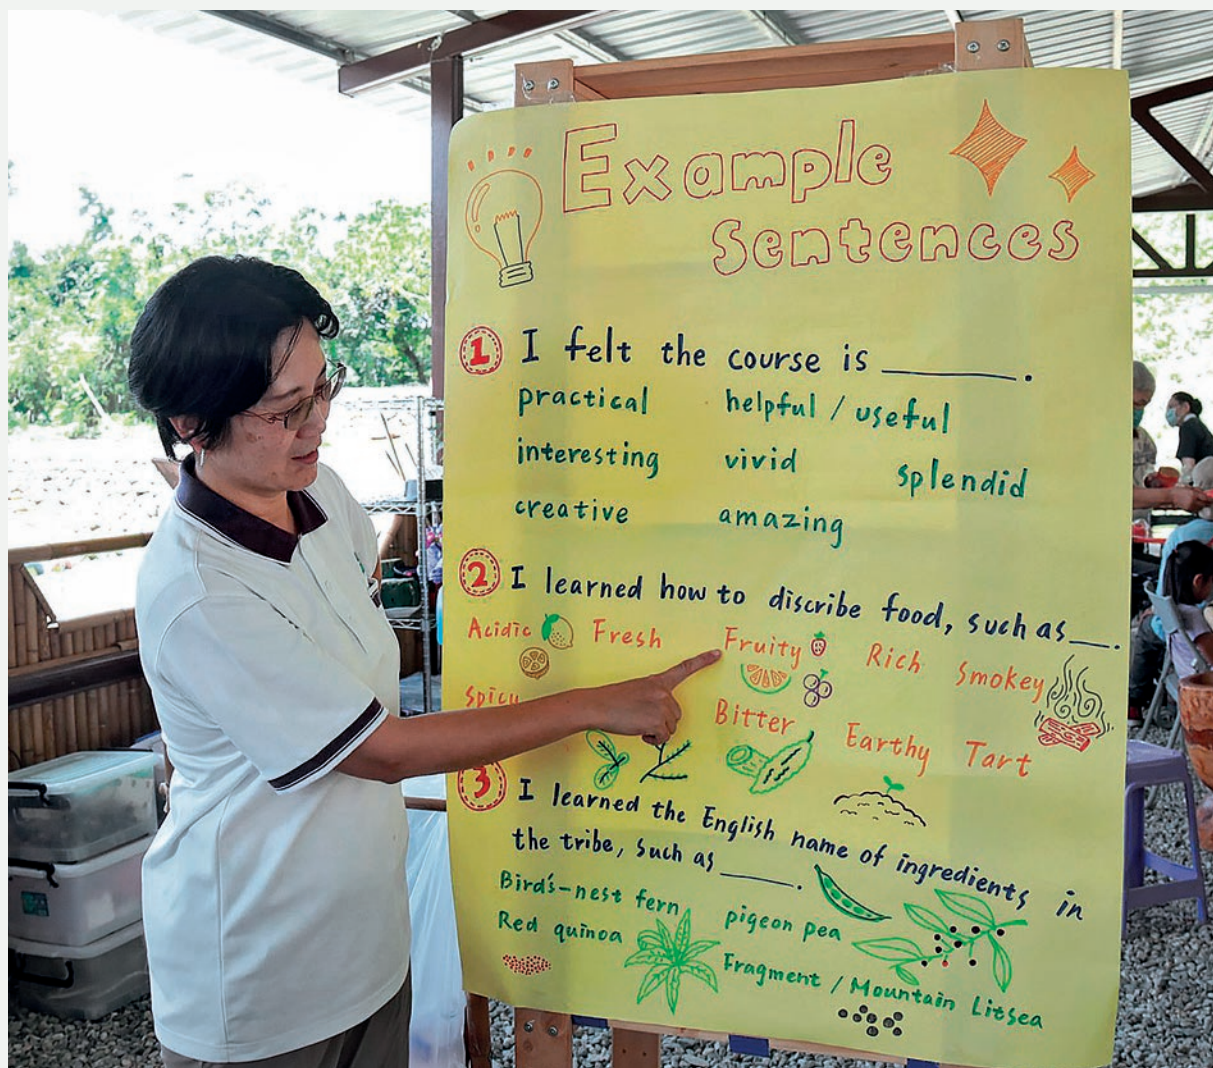 Example
Sentences
1 I felt the course is ______.
practical helpful / useful
interesting vivid splendid
creative amazing
2 I learned how to discribe food, such as___.
Acidic Fresh Fruity Rich Smokey
Spicy Bitter Earthy Tart
3 I learned the English name of ingredients in
the tribe, such as ______.
Bird's-nest fern pigeon pea
Red quinoa Fragment / Mountain Litsea